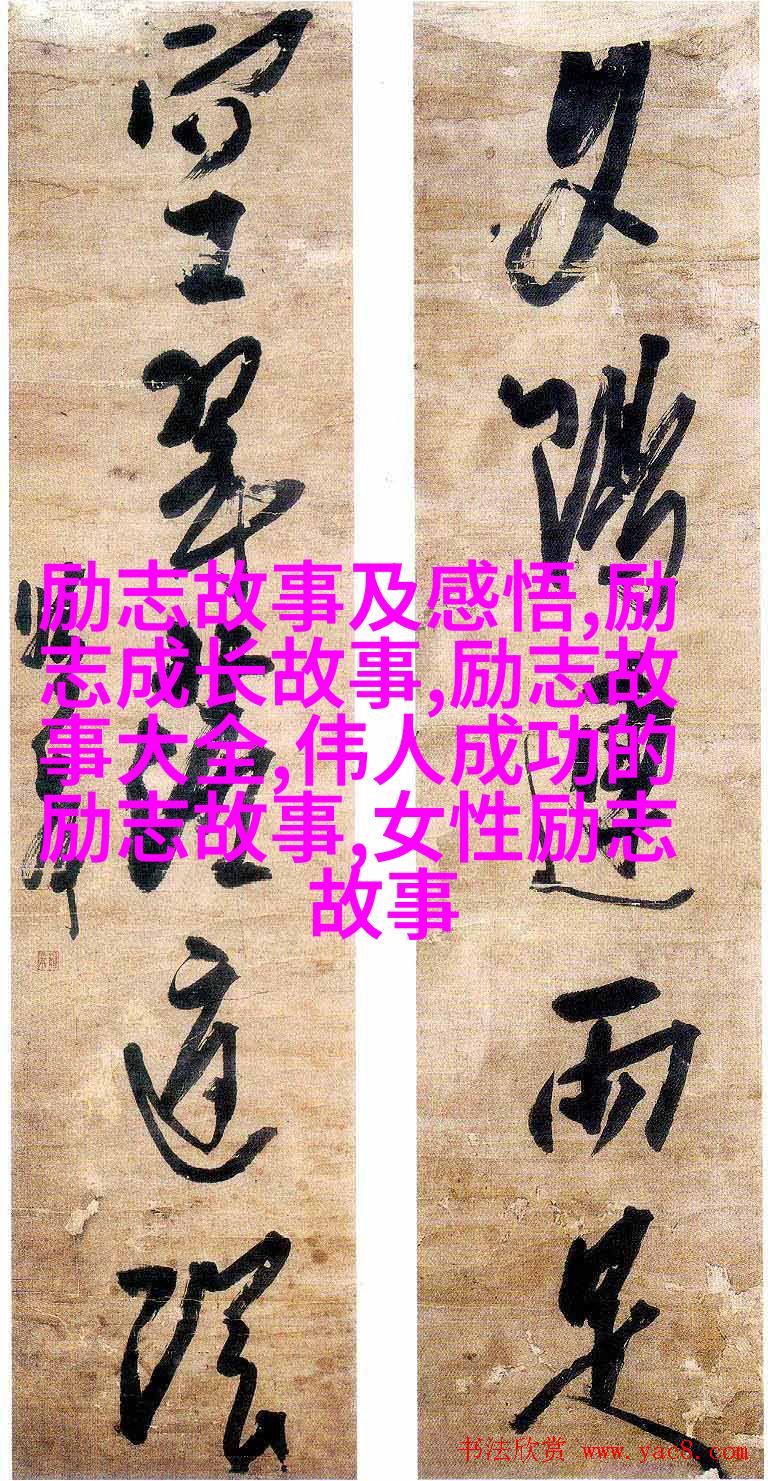 夕陽連雨足
空翠落庭陰
励志故事及感悟,励
志成长故事,励志故
事大全,伟人成功的
励志故事,女性励志
故事
书法欣赏 www.yac8.com